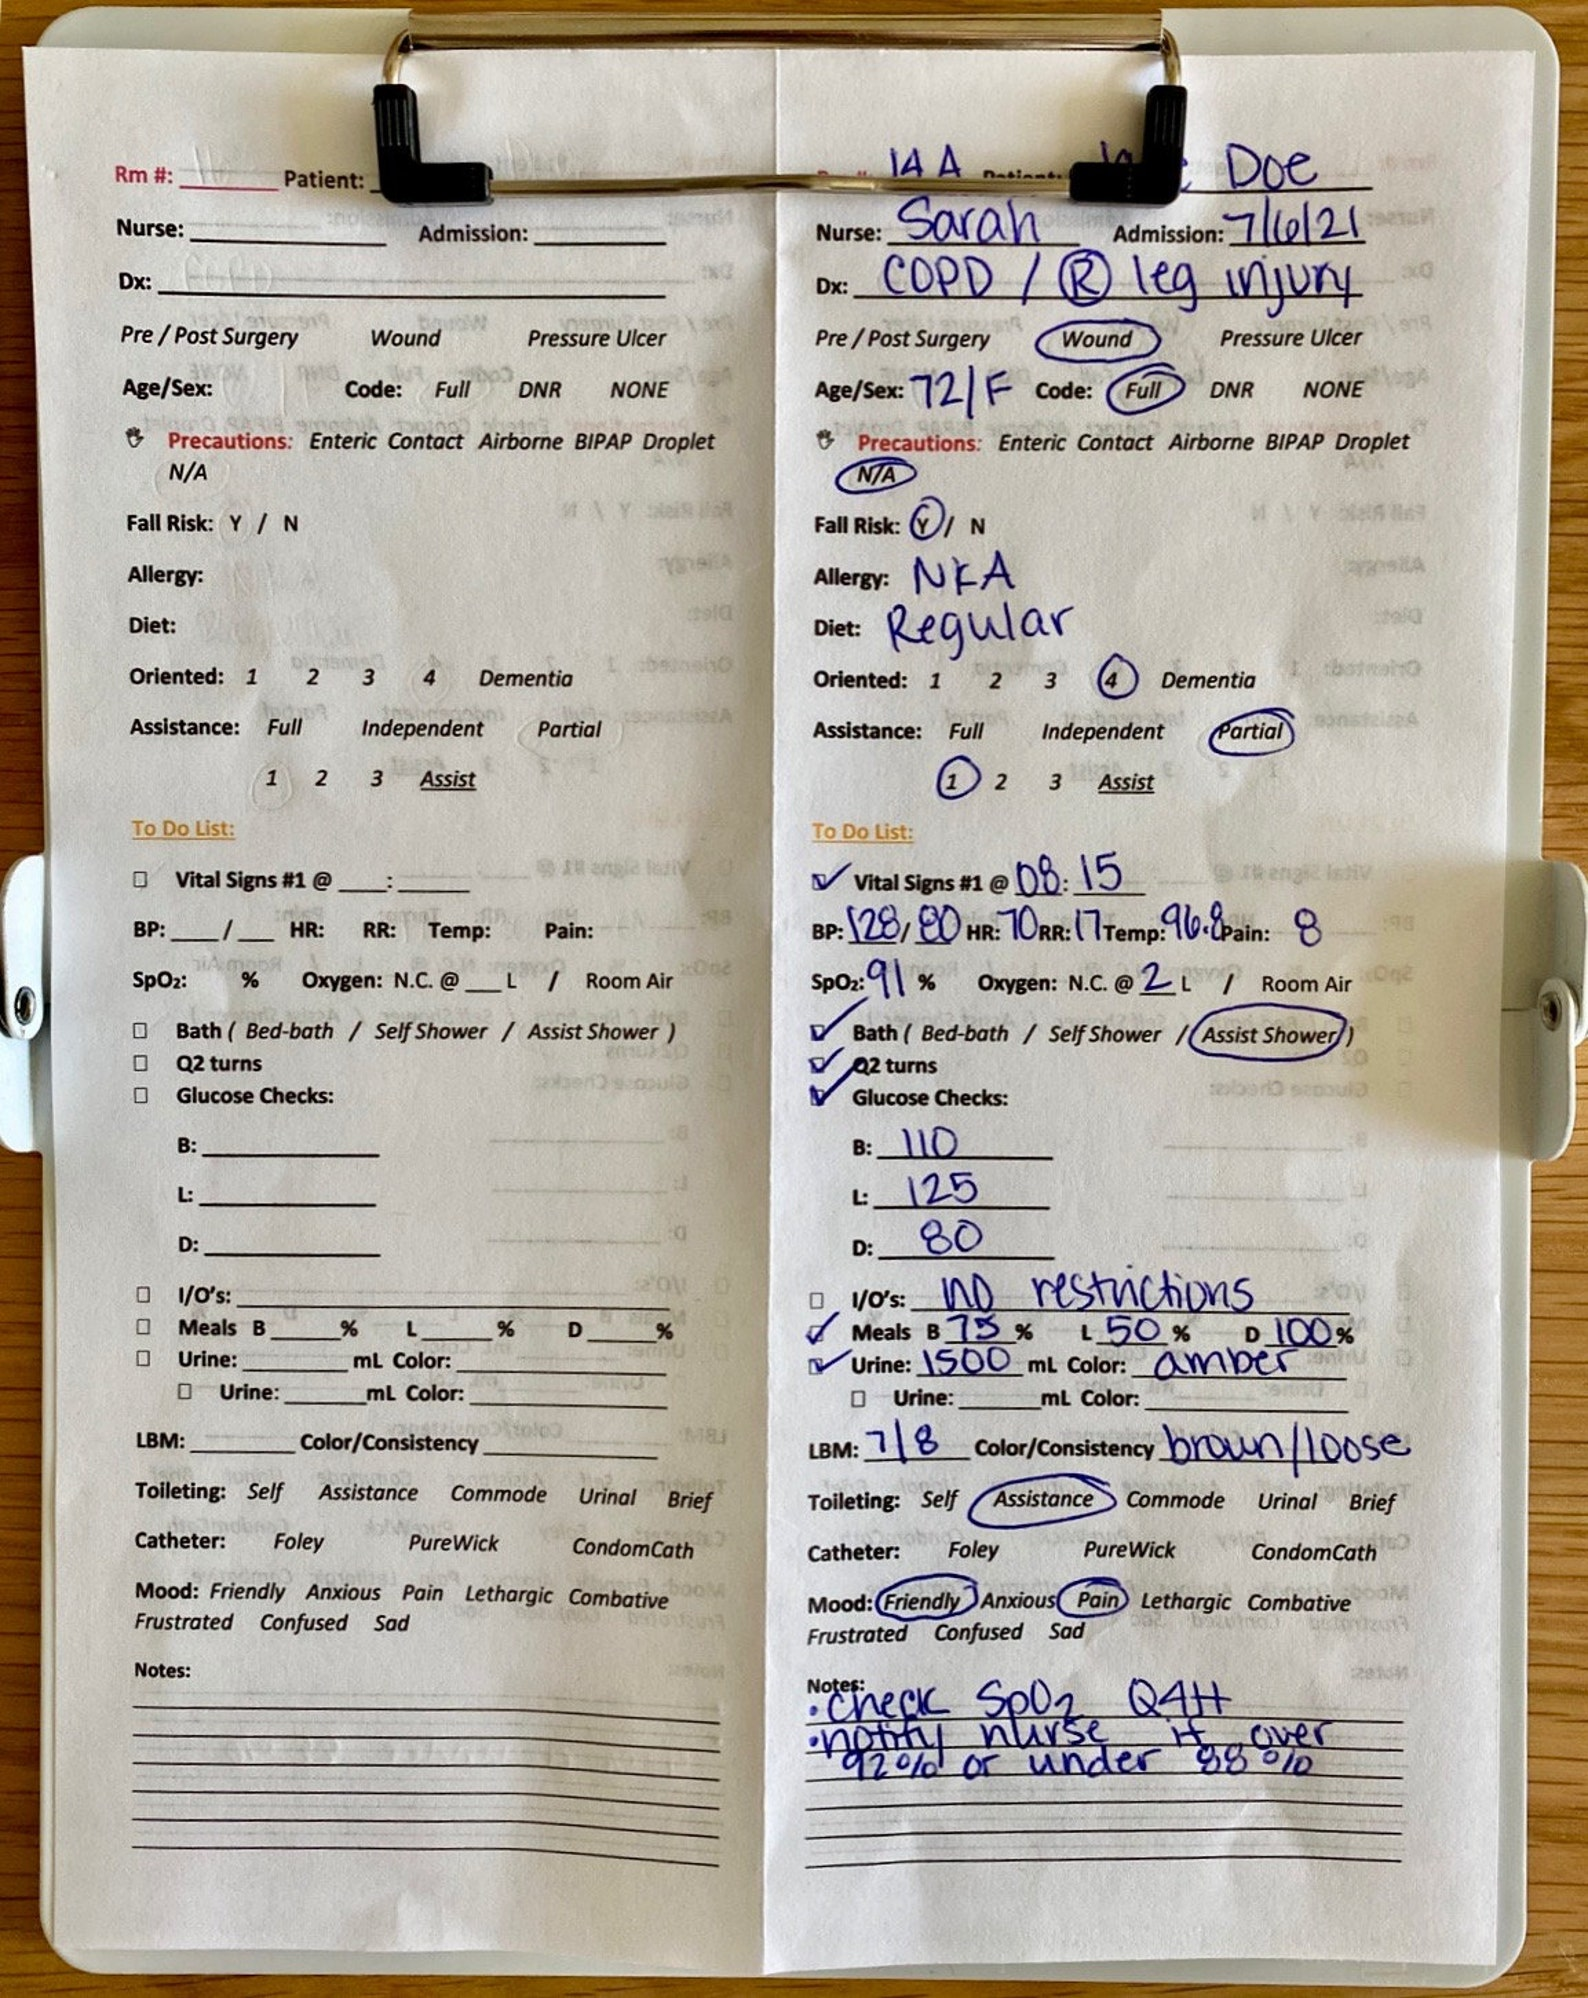 Rm #: ______ Patient:
Nurse: ______ Admission: ______
Dx: ______
Pre / Post Surgery Wound Pressure Ulcer
Age/Sex: Code: Full DNR NONE
Precautions: Enteric Contact Airborne BIPAP Droplet
N/A
Fall Risk: Y / N
Allergy:
Diet:
Oriented: 1 2 3 4 Dementia
Assistance: Full Independent Partial
1 2 3 Assist
To Do List:
☐ Vital Signs #1 @ ___:_____
BP: ___/___ HR: RR: Temp: Pain:
SpO₂: % Oxygen: N.C. @ ___ L / Room Air
☐ Bath ( Bed-bath / Self Shower / Assist Shower )
☐ Q2 turns
☐ Glucose Checks:
B: ______
L: ______
D: ______
☐ I/O's: ______
☐ Meals B _____% L _____% D _____%
☐ Urine: ______ mL Color: ______
☐ Urine: ______mL Color: ______
LBM: ______ Color/Consistency ______
Toileting: Self Assistance Commode Urinal Brief
Catheter: Foley PureWick CondomCath
Mood: Friendly Anxious Pain Lethargic Combative
Frustrated Confused Sad
Notes:
14A Doe
Nurse: Sarah Admission: 7/6/21
Dx: COPD / Ⓡ leg injury
Pre / Post Surgery Wound Pressure Ulcer
Age/Sex: 72/F Code: Full DNR NONE
Precautions: Enteric Contact Airborne BIPAP Droplet
N/A
Fall Risk: Y / N
Allergy: NKA
Diet: Regular
Oriented: 1 2 3 4 Dementia
Assistance: Full Independent Partial
1 2 3 Assist
To Do List:
☑ Vital Signs #1 @ 08:15
BP: 128/80 HR: 70 RR: 17 Temp: 96.8 Pain: 8
SpO₂: 91 % Oxygen: N.C. @ 2 L / Room Air
☑ Bath ( Bed-bath / Self Shower / Assist Shower )
☑ Q2 turns
☑ Glucose Checks:
B: 110
L: 125
D: 80
☐ I/O's: no restrictions
☑ Meals B 75 % L 50 % D 100 %
☑ Urine: 1500 mL Color: amber
☐ Urine: ______mL Color: ______
LBM: 7/8 Color/Consistency brown/loose
Toileting: Self Assistance Commode Urinal Brief
Catheter: Foley PureWick CondomCath
Mood: Friendly Anxious Pain Lethargic Combative
Frustrated Confused Sad
Notes:
• check SpO₂ Q4H
• notify nurse if over
92% or under 88%